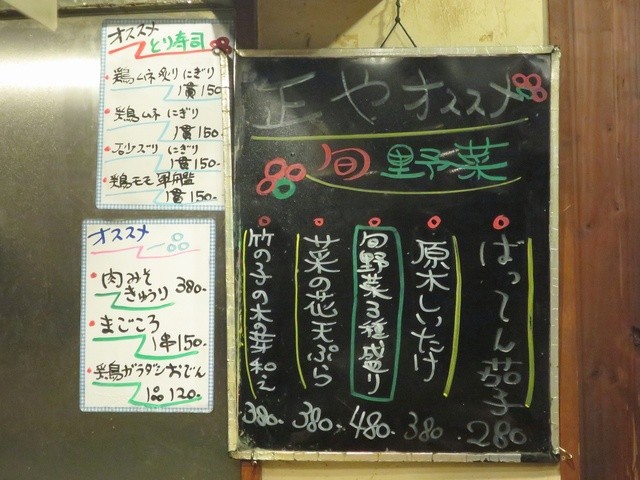 オススメ
とり寿司
鶏ムネ炙りにぎり
1貫150
鶏ムネ にぎり
1貫150.
砂ズリ にぎり
1貫150.
鶏モモ 軍艦
1貫150.
オススメ
肉みそ
きゅうり 380.
まごころ
1串150.
鶏ガラダシおでん
1品120.
正やオススメ
旬野菜
ばってん茄子
280
原木しいたけ
380
旬野菜3種盛り
480.
菜の花天ぷら
380.
竹の子の木の芽和え
380.